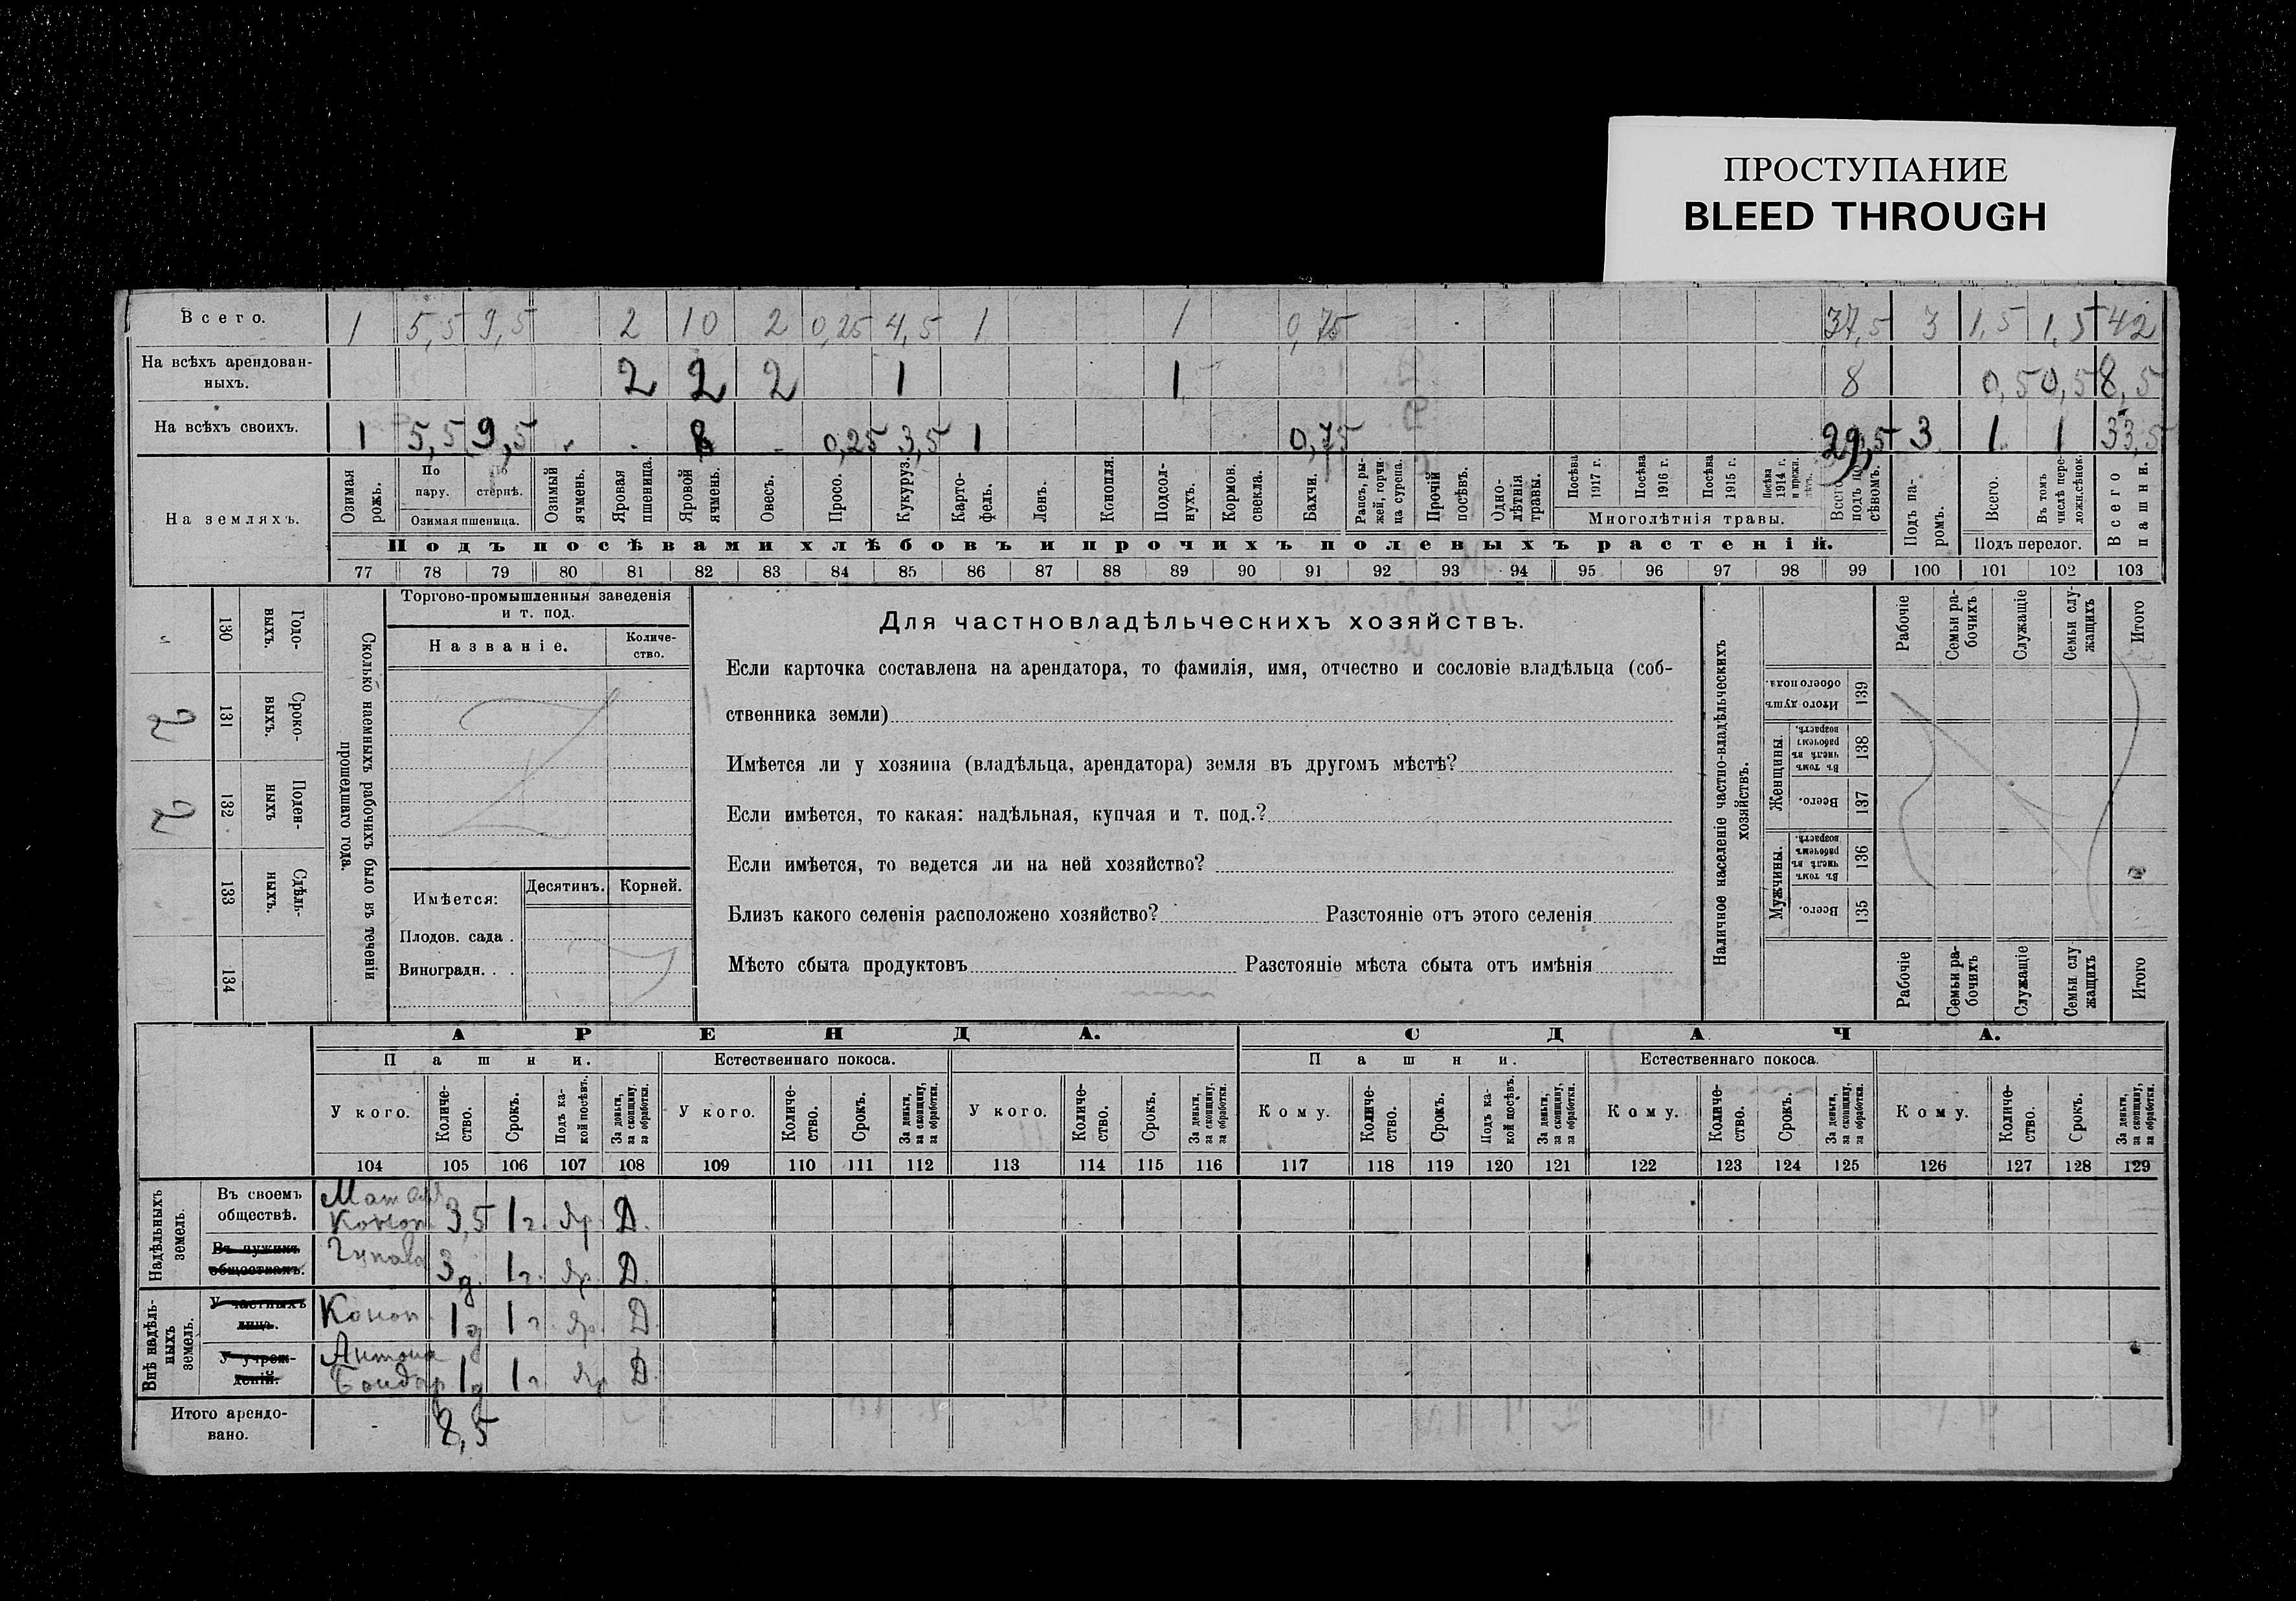 ПРОСТУПАНИЕ
BLEED THROUGH
Всего. 1 5,5 9,5 2 10 2 0,25 4,5 1 1 0,75 37,5 3 1,5 1,5 42
На всѣхъ арендован-
ныхъ. 2 2 2 1 1 8 0,5 0,5 8,5
На всѣхъ своихъ. 1 5,5 9,5 8 0,25 3,5 1 0,75 29,5 3 1 1 33,5
На земляхъ.
Озимая рожь.
По пару.
стернѣ.
Озимая пшеница.
Озимый ячмень.
Яровая пшеница.
Яровой ячмень.
Овесъ.
Просо.
Кукуруз.
Карто-
фель.
Ленъ.
Конопля.
Подсол-
нухъ.
Кормов. свекла.
Бахчи.
Рапсъ, ры-
жей, горчи-
ца сурепа.
Прочій посѣвъ.
Одно-
лѣтнія травы.
Посѣва 1917 г.
Посѣва 1916 г.
Посѣва 1915 г.
Посѣва 1914 г. и прежн.
Многолѣтнія травы.
Всего подъ по-
сѣвомъ.
Подъ па-
ромъ.
Всего.
Въ томъ числѣ пере-
лож. сѣнок.
Подъ перелог.
Всего пашни.
Подъ посѣвами хлѣбовъ и прочихъ полевыхъ растеній.
77 78 79 80 81 82 83 84 85 86 87 88 89 90 91 92 93 94 95 96 97 98 99 100 101 102 103
Годо-
выхъ.
130
Сроко-
выхъ.
131
2
Поден-
ныхъ
132
2
Сдѣль-
ныхъ.
133
134
Сколько наемныхъ рабочихъ было въ теченіи
прошедшаго года.
Торгово-промышленныя заведенія
и т. под.
Названіе.
Количе-
ство.
Имѣется:
Десятинъ.
Корней.
Плодов. сада .
Виноградн. . .
Для частновладѣльческихъ хозяйствъ.
Если карточка составлена на арендатора, то фамилія, имя, отчество и сословіе владѣльца (соб-
ственника земли)
Имѣется ли у хозяина (владѣльца, арендатора) земля въ другомъ мѣстѣ?
Если имѣется, то какая: надѣльная, купчая и т. под.?
Если имѣется, то ведется ли на ней хозяйство?
Близъ какого селенія расположено хозяйство? Разстояніе отъ этого селенія
Мѣсто сбыта продуктовъ Разстояніе мѣста сбыта отъ имѣнія
Наличное населеніе частно-владѣльческихъ
хозяйствъ.
Рабочіе
Семьи ра-
бочихъ
Служащіе
Семьи слу-
жащихъ
Итого
Итого душъ
обоего пола.
139
Женщины.
Въ томъ числѣ въ рабочемъ возрастѣ.
138
Всего.
137
Мужчины.
Въ томъ числѣ въ рабочемъ возрастѣ.
136
Всего.
135
Рабочіе
Семьи ра-
бочихъ
Служащіе
Семьи слу
жащихъ
Итого
АРЕНДА.
СДАЧА.
Пашни.
Естественнаго покоса.
Пашни.
Естественнаго покоса.
У кого.
Количе-
ство.
Срокъ.
Подъ ка-
кой посѣвъ.
За деньги,
за скопщину,
за обработки.
У кого.
Количе-
ство.
Срокъ.
За деньги,
за скопщину,
за обработки.
У кого.
Количе-
ство.
Срокъ.
За деньги,
за скопщину,
за обработки.
Кому.
Количе-
ство.
Срокъ.
Подъ ка-
кой посѣвъ.
За деньги,
за скопщину,
за обработки.
Кому.
Количе-
ство.
Срокъ.
За деньги,
за скопщину,
за обработки.
Кому.
Количе-
ство.
Срокъ.
За деньги,
за скопщину,
за обработки.
104 105 106 107 108 109 110 111 112 113 114 115 116 117 118 119 120 121 122 123 124 125 126 127 128 129
Надѣльныхъ
земель.
Въ своемъ
обществѣ. 3,5 1 г. Яр. Д.
Въ чужихъ
обществахъ. 3 д. 1 г. Яр. Д.
Внѣ надѣль-
ныхъ
земель.
У частныхъ
лицъ. Конон. 1 д 1 г. Яр. Д.
У учреж-
деній. Антона
Бондар 1 д 1 г. Яр Д.
Итого арендо-
вано. 8,5